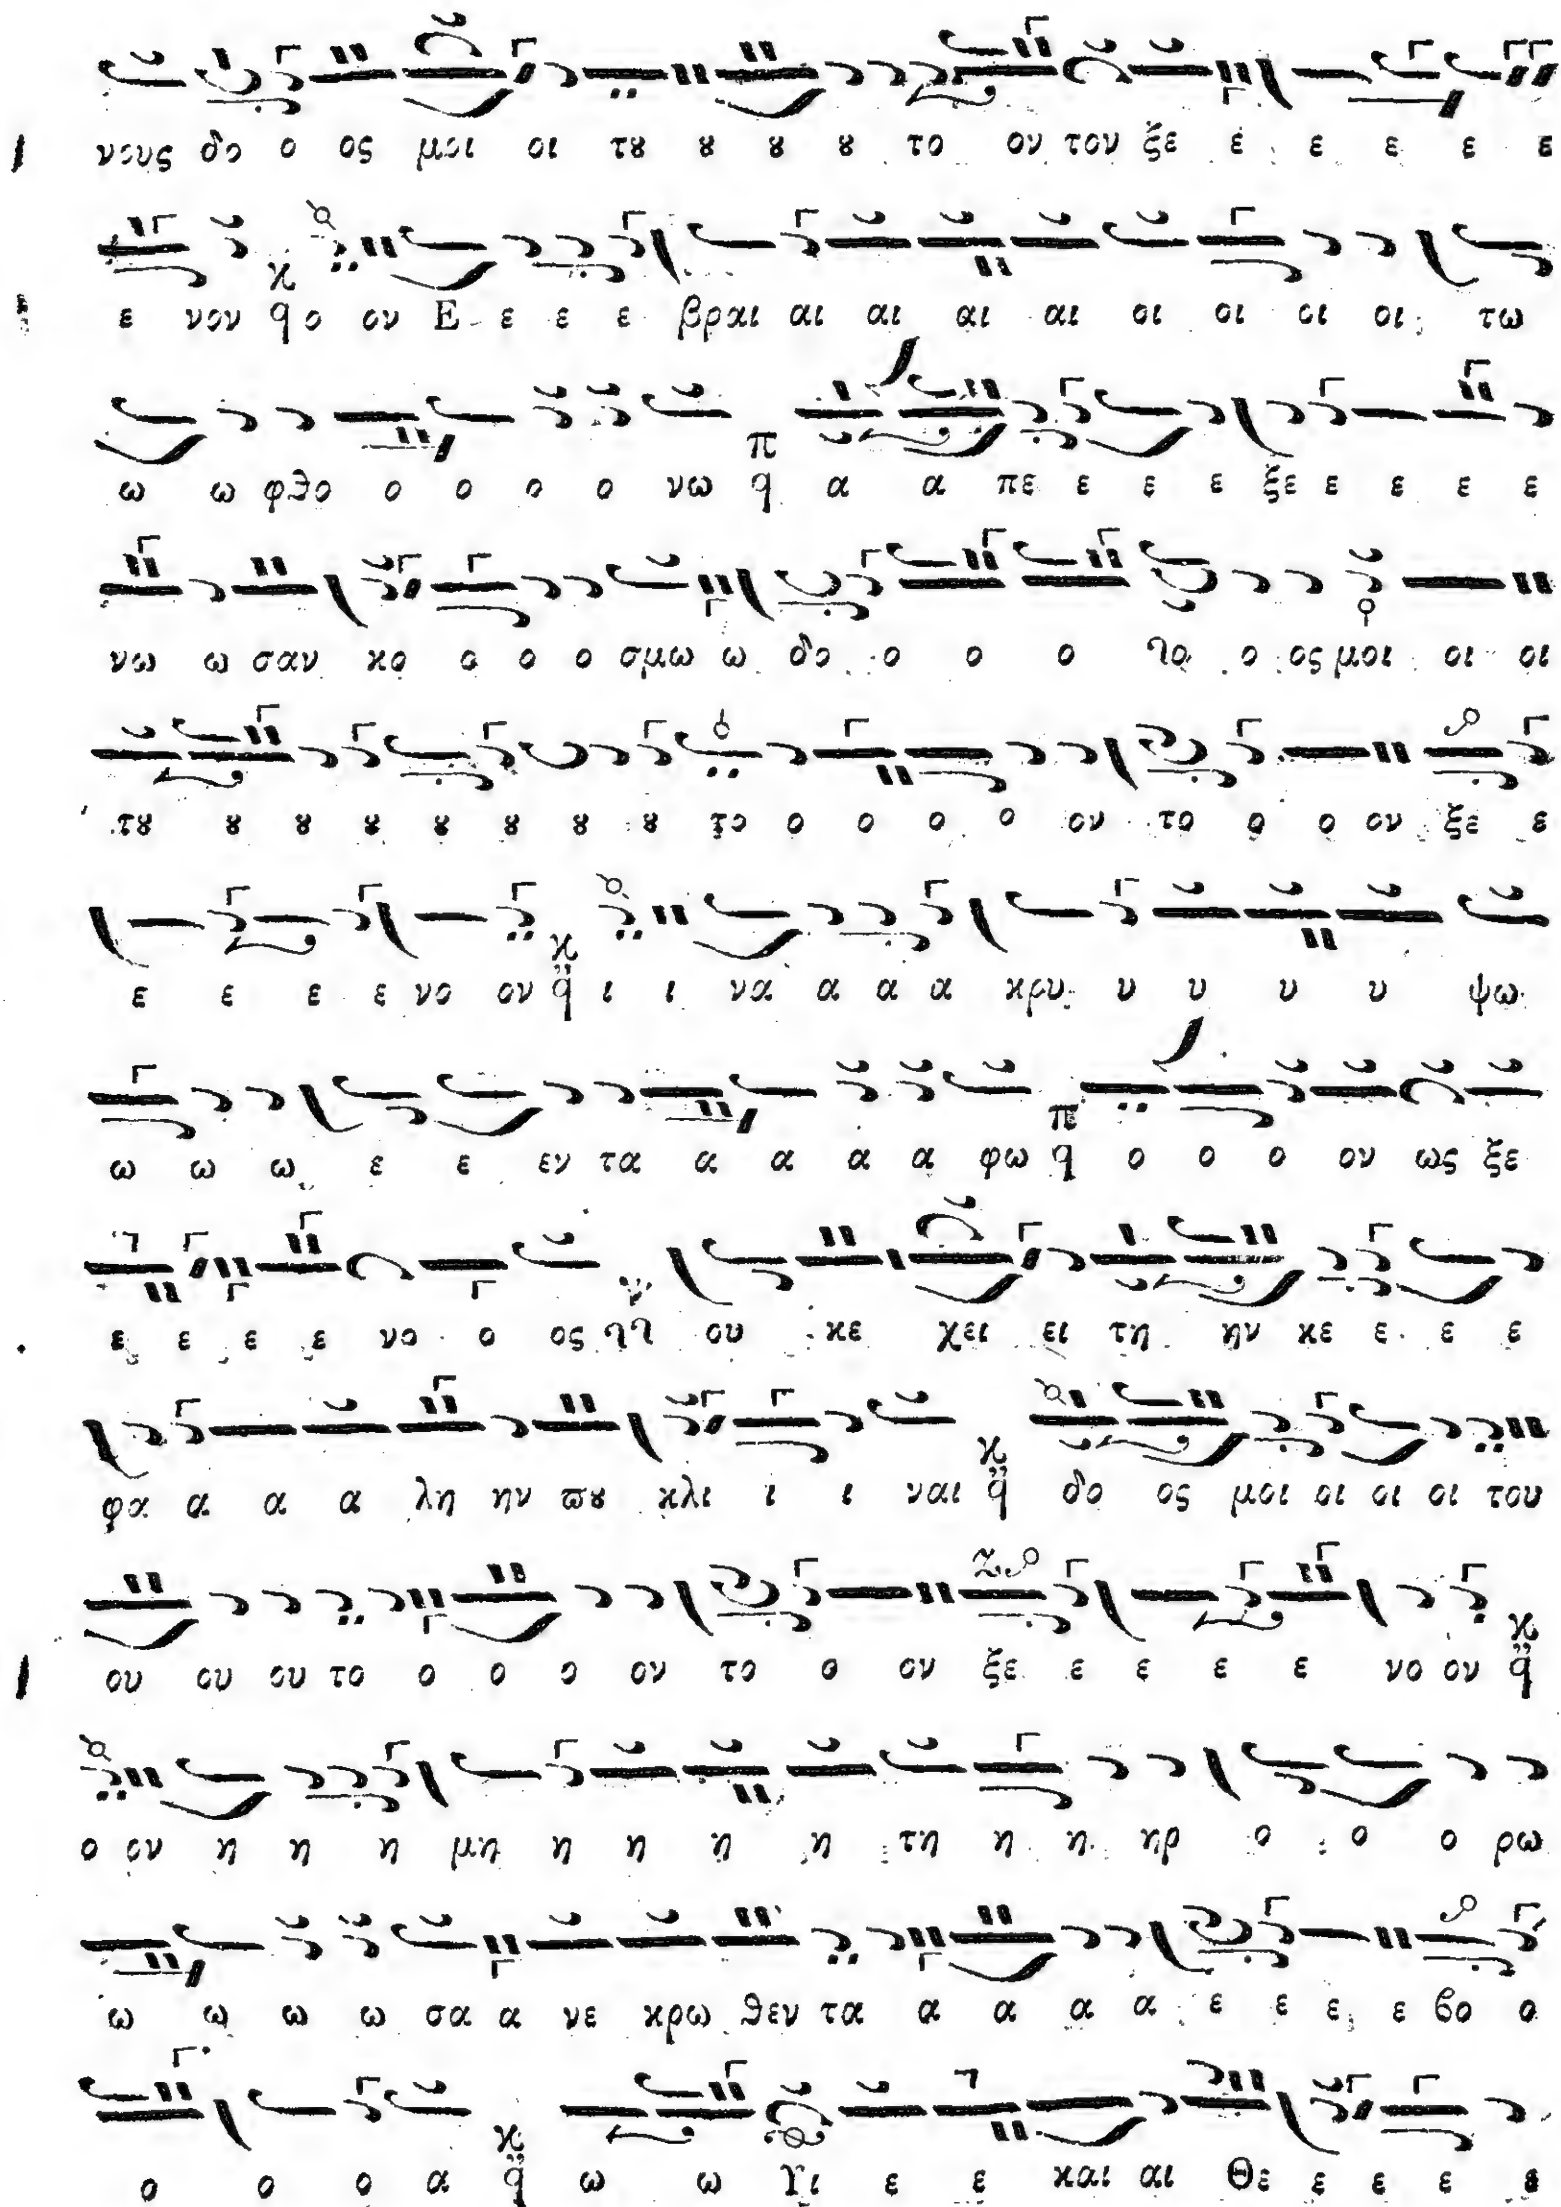 νους δο ο ος μοι οι τȣ ȣ ȣ ȣ το ον τον ξε ε ε ε ε ε
ε νον ϙ ο ον Ε ε ε ε βραι αι αι αι αι οι οι οι οι τω
ω ω φθο ο ο ο ο νω ϙ α α πε ε ε ε ξε ε ε ε ε
νω ω σαν κο ο ο ο σμω ω δο ο ο ο το ο ος μοι οι οι
τȣ ȣ ȣ ȣ ȣ ȣ ȣ ȣ το ο ο ο ο ον το ο ο ον ξε ε
ε ε ε ε νο ον ϙ ι ι να α α α κρυ υ υ υ υ ψω
ω ω ω ε ε εν τα α α α α φω ϙ ο ο ο ον ως ξε
ε ε ε ε νο ο ος ου κε χει ει τη ην κε ε ε ε
φα α α α λη ην πȣ κλι ι ι ναι ϙ δο ος μοι οι οι οι του
ου ου ου το ο ο ο ον το ο ον ξε ε ε ε ε νο ον ϙ
ο ον η η η μη η η η η τη η η ηρ ο ο ο ρω
ω ω ω ω σα α νε κρω θεν τα α α α α ε ε ε ε βο ο
ο ο ο α ϙ ω ω Υι ε ε και αι Θε ε ε ε ε